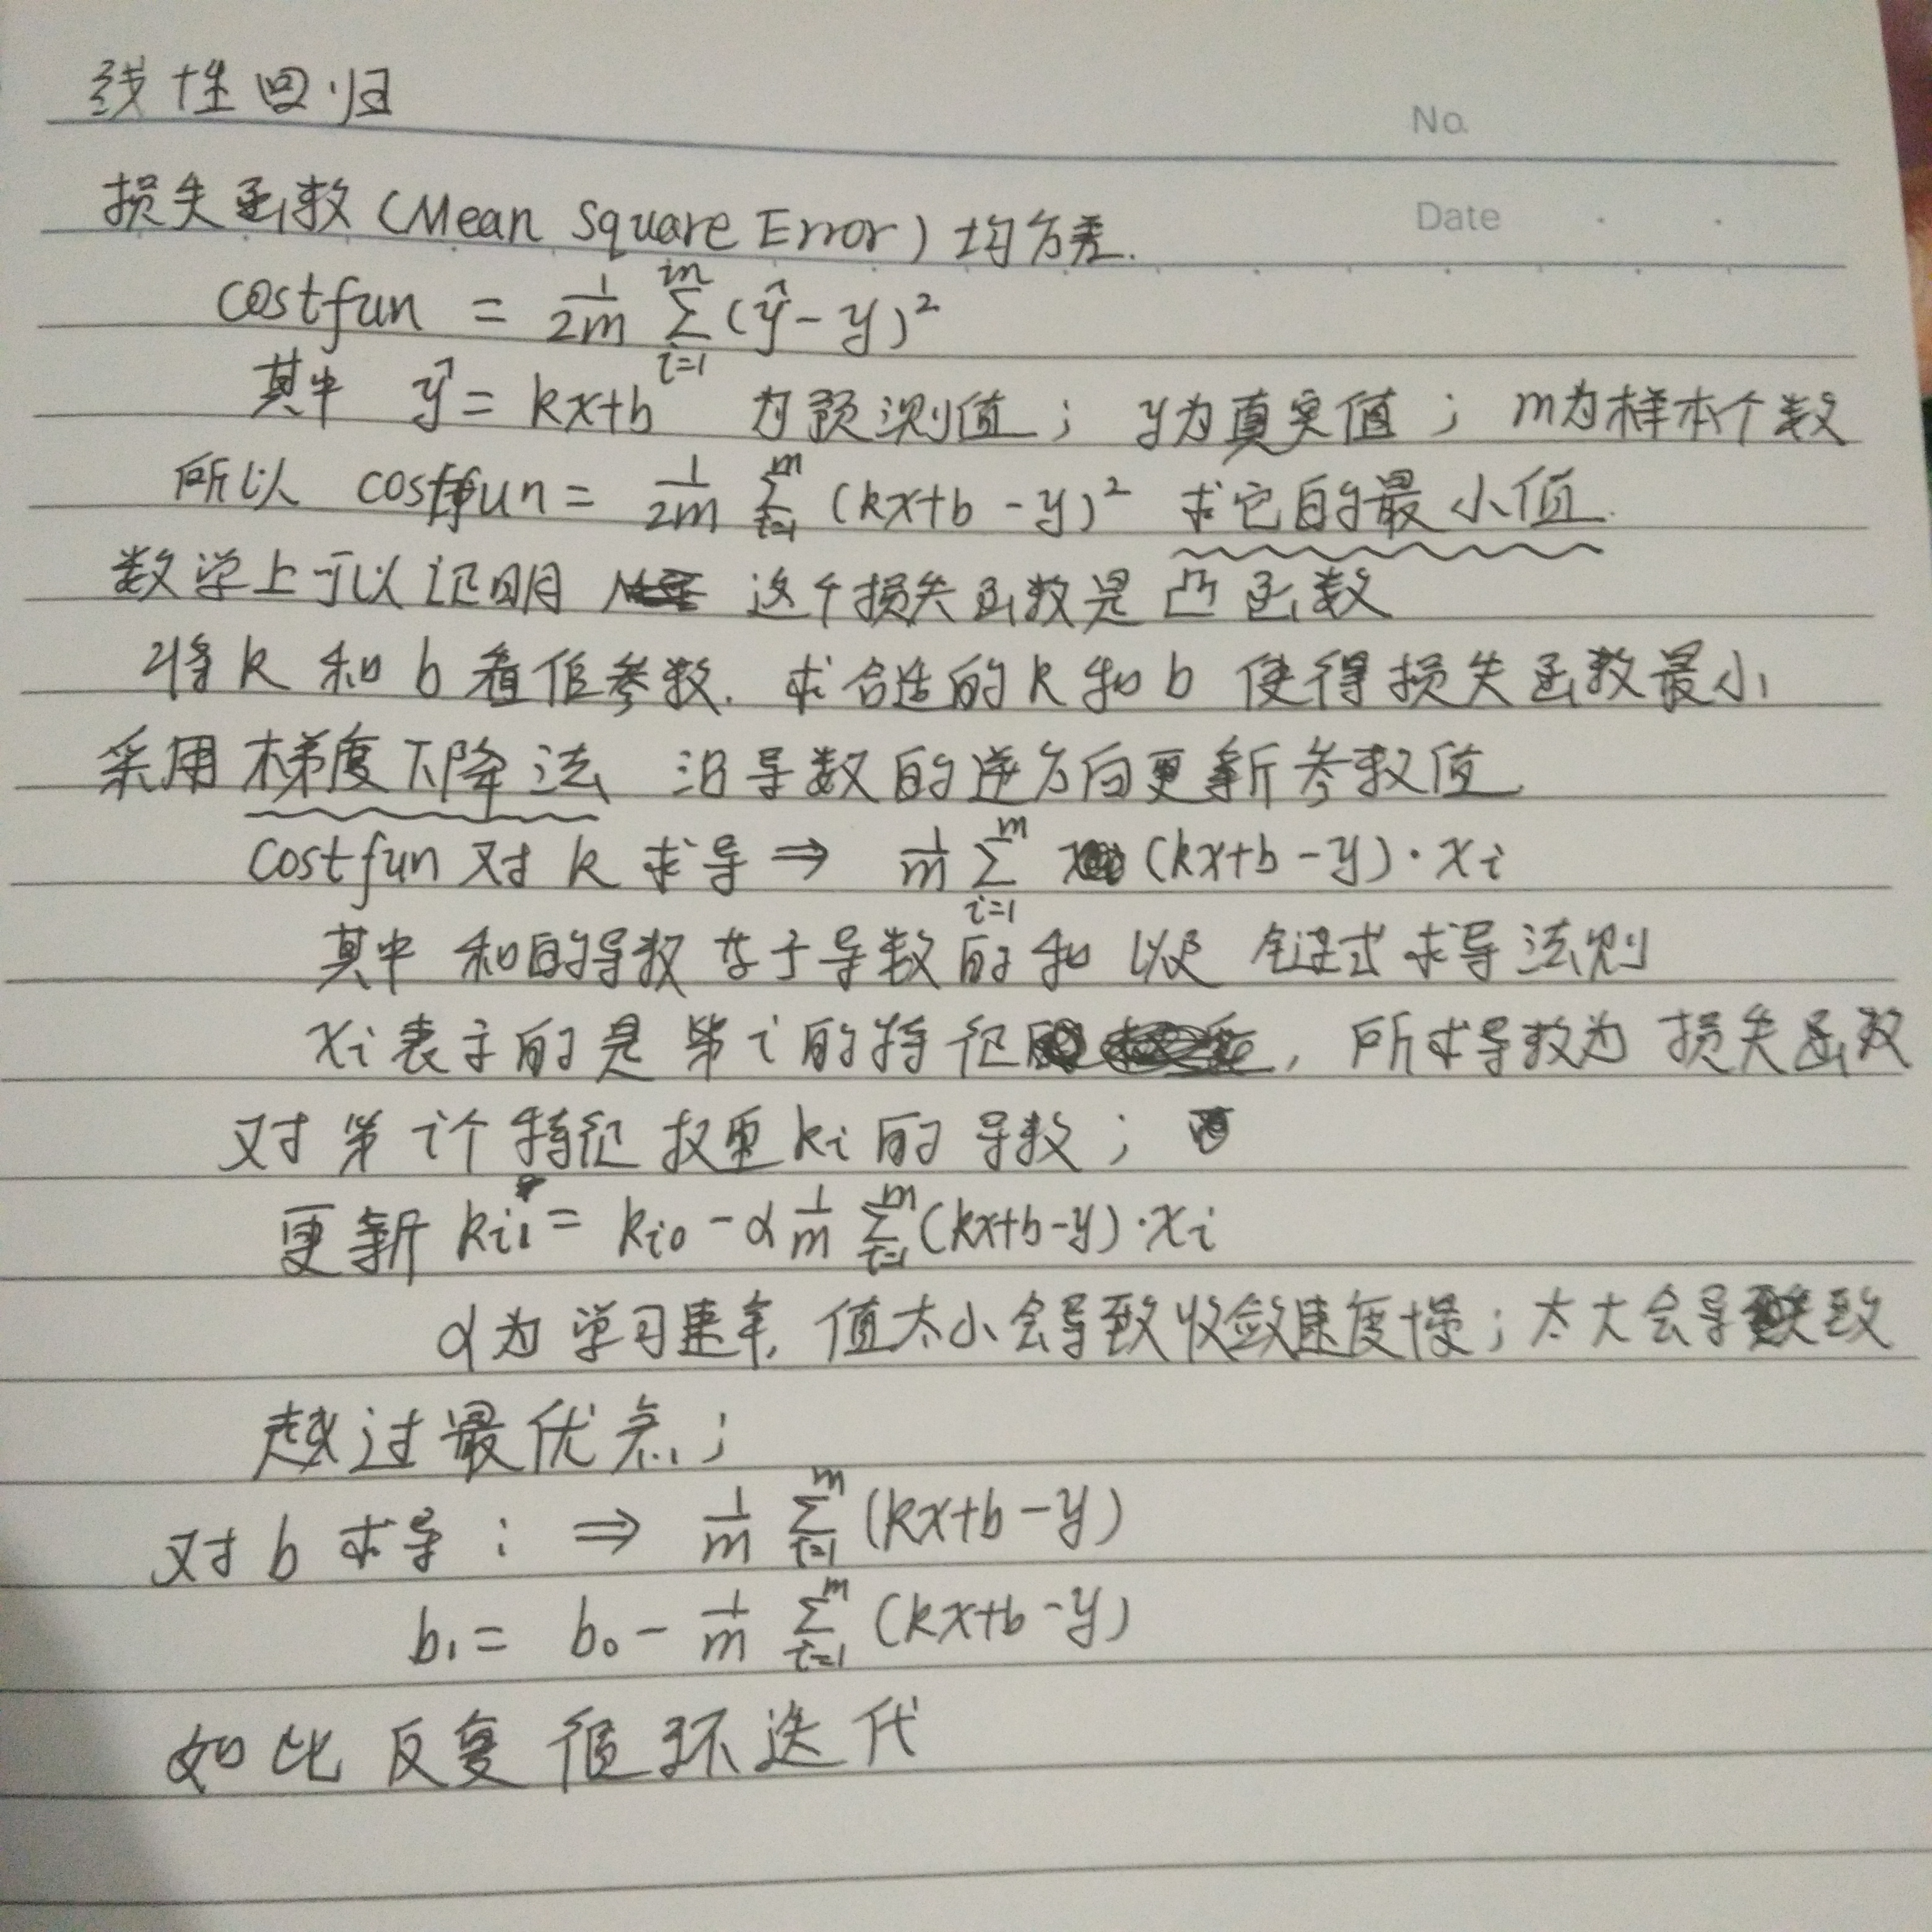 线性回归
No.
损失函数(Mean Square Error)均方差.
Date
costfun = 1/2m Σ_{i=1}^{m} (ŷ-y)²
其中 ŷ = kx+b 为预测值; y为真实值; m为样本个数
所以 costfun = 1/2m Σ_{i=1}^{m} (kx+b-y)² 求它的最小值.
数学上可以证明 这个损失函数是凸函数
将k和b看作参数. 求合适的k和b 使得损失函数最小
采用梯度下降法 沿导数的逆方向更新参数值
costfun 对 k 求导 ⇒ 1/m Σ_{i=1}^{m} (kx+b-y)·xi
其中 和的导数等于导数的和 以及 链式求导法则
xi表示的是第i的特征, 所求导数为损失函数
对第i个特征权重ki的导数;
更新 ki1 = ki0 - α 1/m Σ_{i=1}^{m} (kx+b-y)·xi
α为学习速率, 值太小会导致收敛速度慢; 太大会导致
越过最优点;
对b求导: ⇒ 1/m Σ_{i=1}^{m} (kx+b-y)
b₁ = b₀ - 1/m Σ_{i=1}^{m} (kx+b-y)
如此反复循环迭代